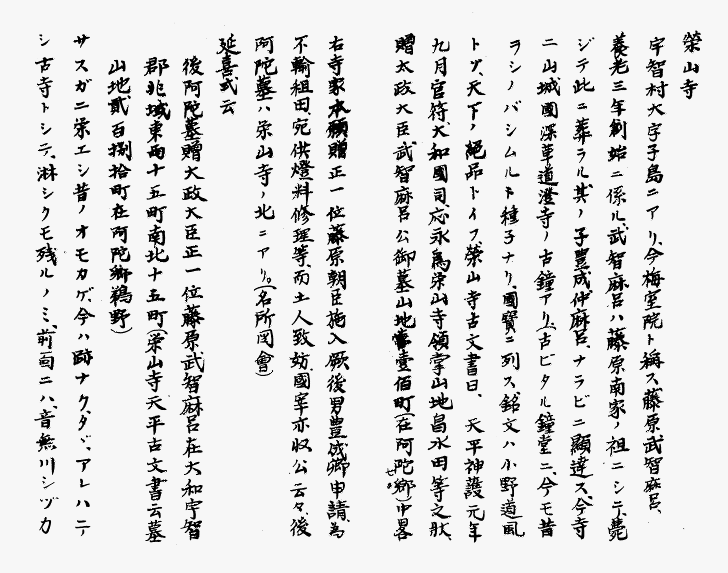 榮山寺
宇智村大字子島ニアリ、今梅室院ト稱ス、藤原武智麻呂、
養老三年創始ニ係ル、武智麻呂ハ藤原南家ノ祖ニシテ、薨
ジテ此ニ葬ラル、其ノ子豊成仲麻呂、ナラビニ顯達ス、今寺
ニ山城國深草道澄寺ノ古鐘アリ、古ビタル鐘堂ニ、今モ昔
ヲシノバシムルト種子ナリ、國寳ニ列ス、銘文ハ小野道風
トゾ、天下ノ絶品ドイフ、榮山寺古文書曰、天平神護元年
九月官符大和國司、応永為栄山寺領掌山地畠水田等之狀、
贈太政大臣武智麻呂公御墓山地壹佰町(在阿陀郷)中畧
右寺家本願贈正一位藤原朝臣施入、厥後男豊成卿申請、為
不輸租田、宛供燈料修理等、而土人致妨、國宰亦収公云々、後
阿陀墓ハ栄山寺ノ北ニアリ。(名所図會)
延喜式云
後阿陀墓贈太政大臣正一位藤原武智麻呂在大和宇智
郡兆域東西十五町南北十五町(栄山寺天平古文書云墓
山地貳百捌拾町在阿陀郷鵜野)
サスガニ栄エシ昔ノオモカゲ、今ハ跡ナク、タヾ、アレハテ
シ古寺トシテ、淋シクモ残ルノミ、前面ニハ、音無川シヅカ